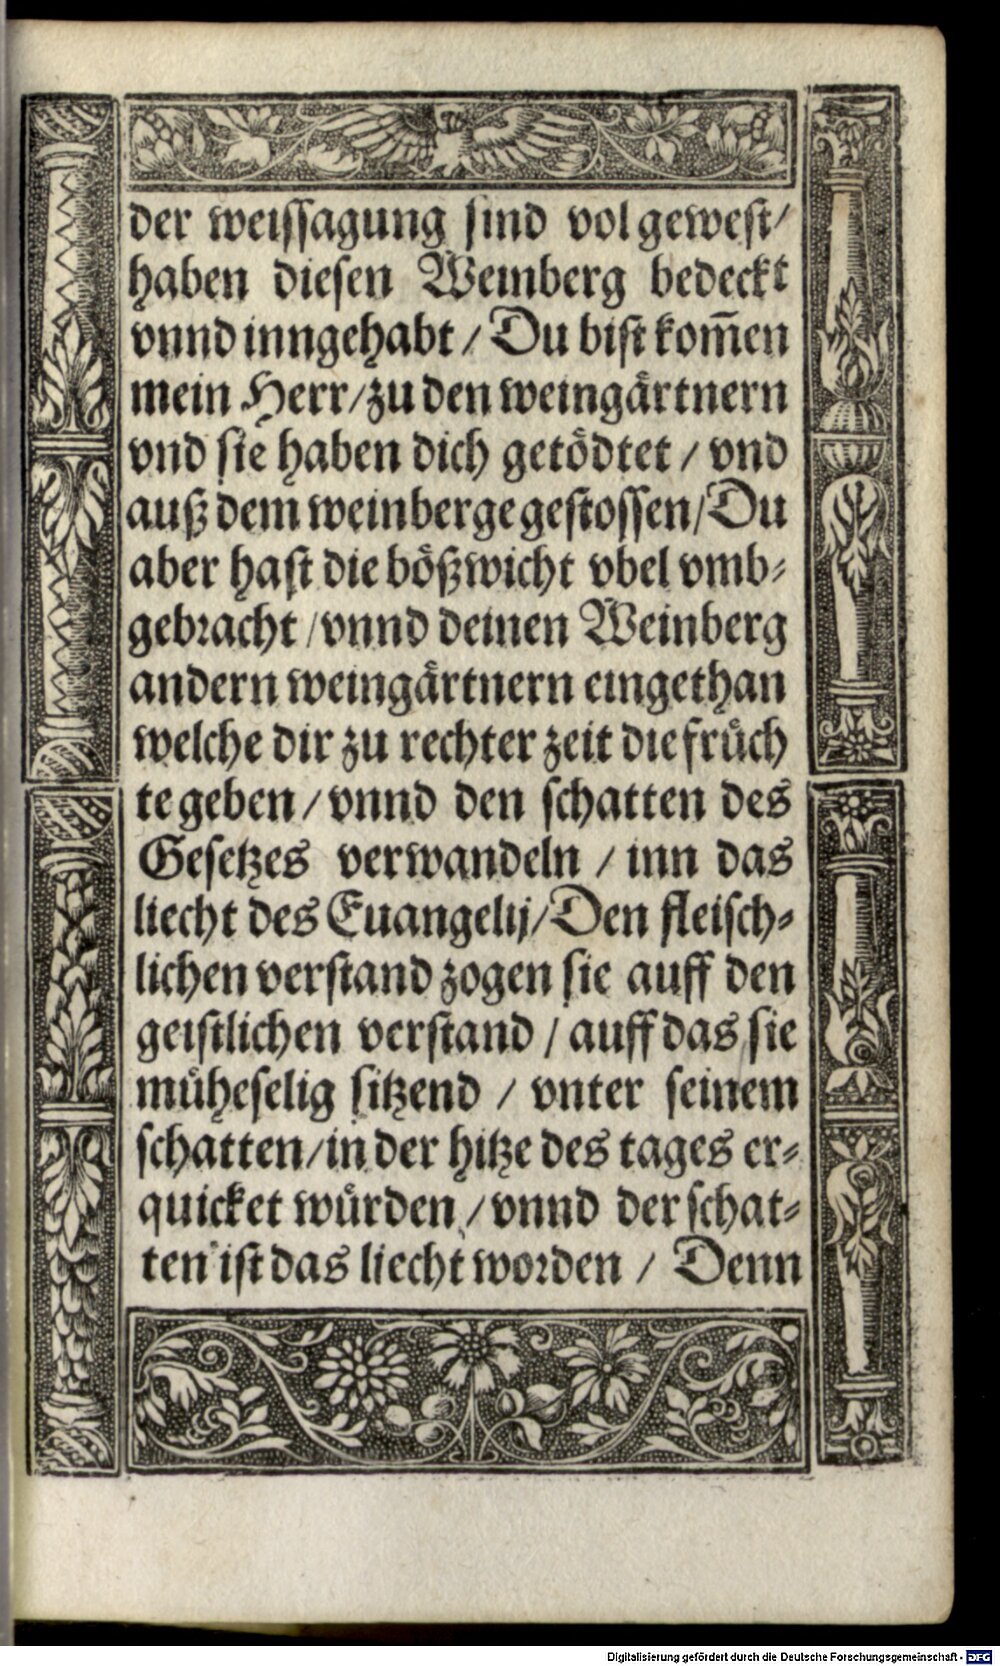 der weissagung sind vol gewest/
haben diesen Weinberg bedeckt
vnnd inngehabt / Du bist kom̄en
mein Herr/zu den weingårtnern
vnd sie haben dich getödtet / vnd
auß dem weinberge gestossen/Du
aber hast die bößwicht vbel vmb-
gebracht /vnnd deinen Weinberg
andern weingårtnern eingethan
welche dir zu rechter zeit die frůch
te geben / vnnd den schatten des
Gesetzes verwandeln / inn das
liecht des Euangelij/Den fleisch-
lichen verstand zogen sie auff den
geistlichen verstand / auff das sie
můheselig sitzend / vnter seinem
schatten/in der hitze des tages er-
quicket wůrden / vnnd der schat-
ten ist das liecht worden / Denn
Digitalisierung gefördert durch die Deutsche Forschungsgemeinschaft - DFG